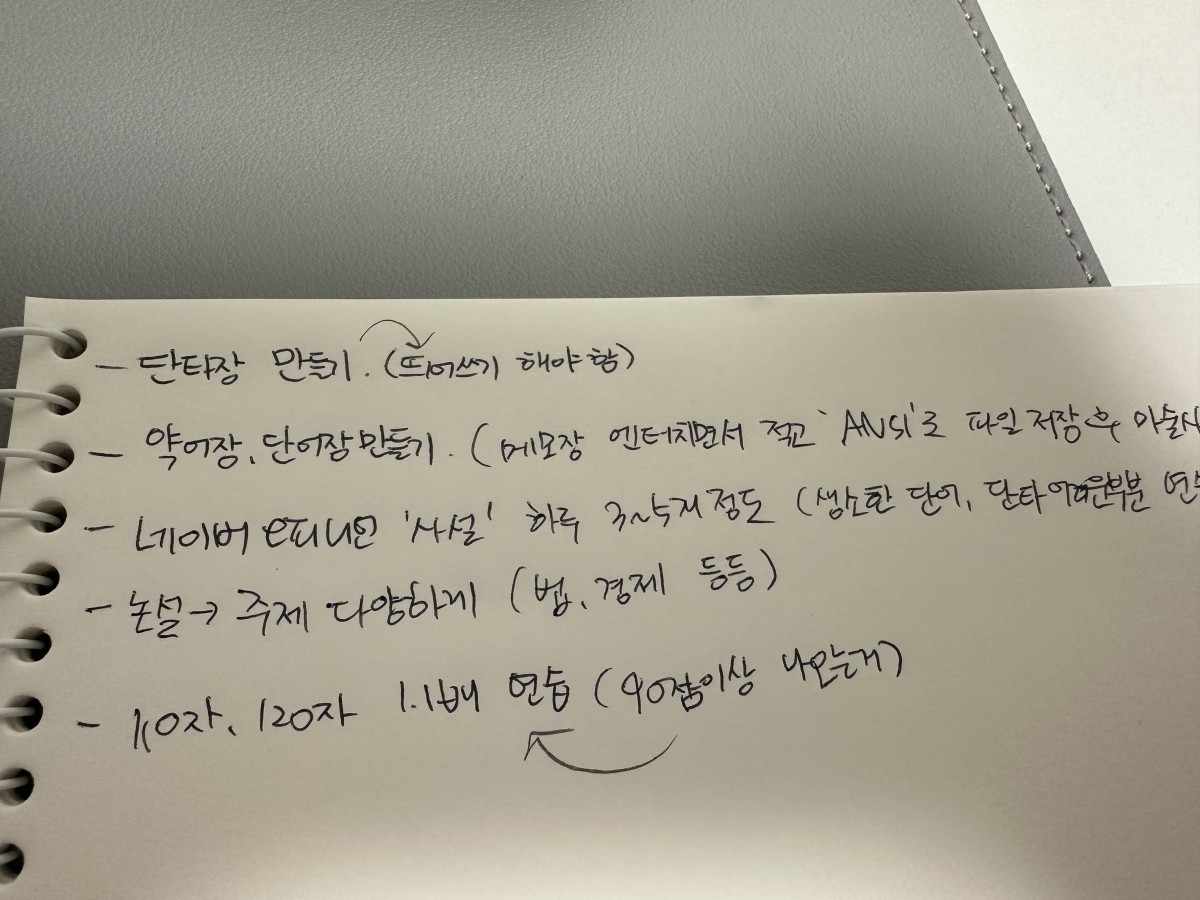 - 단타장 만들기. (띄어쓰기 해야 함)
- 약어장, 단어장 만들기. (메모장 엔터치면서 적고 'ANSI'로 파일 저장 후
- 네이버 오피니언 '사설' 하루 3~5지 정도 (생소한 단어, 단타 어려운부분
- 논설 → 주제 다양하게 (법, 경제 등등)
- 110자, 120자 1.1배 연습 (90점이상 나오는거)